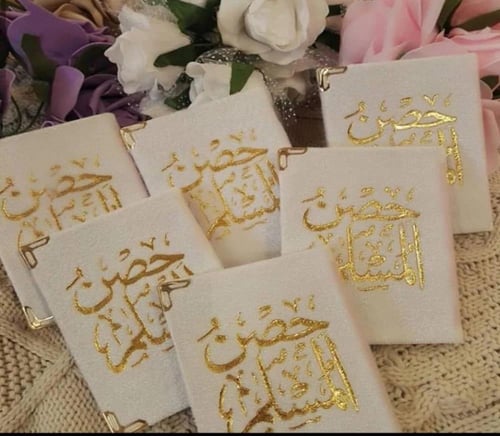 حصن
المسلم
حصن
المسلم
حصن
المسلم
حصن
المسلم
حصن
المسلم
حصن
المسلم